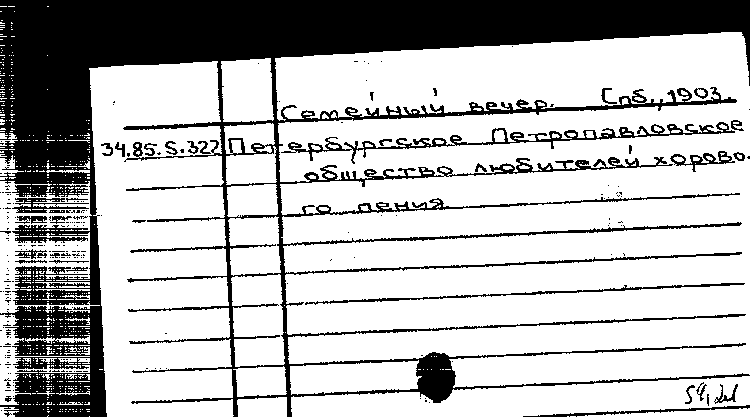 Семейный вечер. Спб., 1903.
34.85.S.322 Петербургское Петропавловское
общество любителей хорово-
го пения